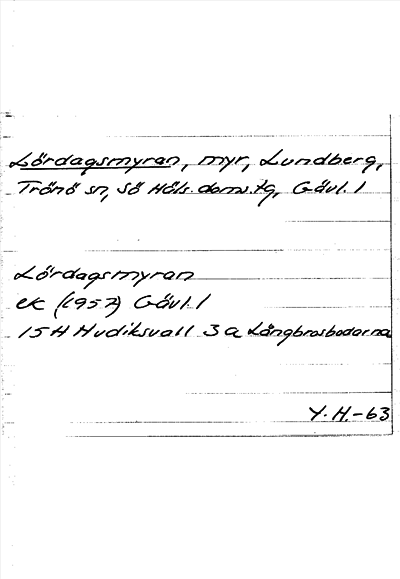 Lördagsmyran, myr, Lundberg,
Trönö sn, Sö Häls. doms.tg, Gävl. l
Lördagsmyran
ek (1957) Gävl. l
15H Hudiksvall 3a Långbrosbodarna
Y. H.-63